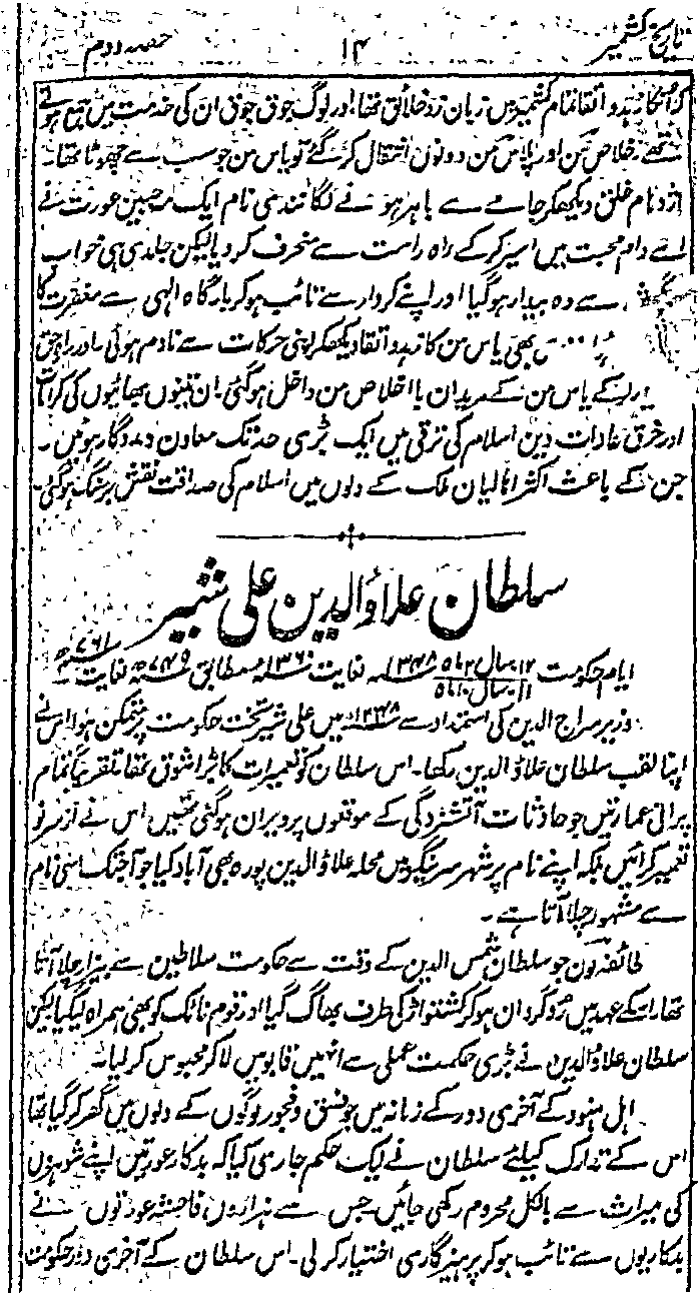 تاریخ کشمیر ۱۴ حصہ دوم
کہ انکا زہد و اتقا تمام کشمیر میں زبان زد خلائق تھا اور لوگ جوق جوق ان کی خدمت میں جمع ہوتے
تھے۔ خلاص من اور پلاس من دونوں انتقال کر گئے تو یاس من جو سب سے چھوٹا تھا۔
اژدہام خلق دیکھکر جامے سے باہر ہونے لگا نندی نام ایک مہ جبین عورت نے
اسے دام محبت میں اسیر کرکے راہ راست سے منحرف کر دیا لیکن جلدی ہی خواب
سے وہ بیدار ہو گیا اور اپنے کردار سے تائب ہو کر بارگاہ الٰہی سے مغفرت کا
بھی یاس من کا زہد و اتقا دیکھکر اپنی حرکات سے نادم ہوئی۔ اور
کے یاس من کے مریدان با اخلاص من داخل ہو گئی۔ ان تینوں بھائیوں کی کرامات
اور خرق عادات دین اسلام کی ترقی میں ایک بڑی حد تک معاون و مددگار ہوئیں۔
جن کے باعث اکثر اہالیان ملک کے دلوں میں اسلام کی صداقت نقش بر سنگ ہو گئی۔
سلطان علاؤ الدین علی شیر
ایام حکومت ۱۲ سال ۲ ماہ ۱۳۴۸ء لغایت ۱۳۶۰ء مطابق ۷۴۹ھ لغایت ۷۶۱ھ
۱۱ سال ۱۰ ماہ
وزیر سراج الدین کی استمداد سے ۱۳۴۸ء میں علی شیر تخت حکومت پر متمکن ہوا اس نے
اپنا لقب سلطان علاؤ الدین رکھا۔ اس سلطان کو تعمیرات کا بڑا شوق تھا تقریباً تمام
پرانی عمارتیں جو حادثات آتشزدگی کے موقعوں پر ویران ہو گئی تھیں اس نے از سر نو
تعمیر کرائیں بلکہ اپنے نام پر شہر سرینگر میں محلہ علاؤ الدین پورہ بھی آباد کیا جو آجتک اسی نام
سے مشہور چلا آتا ہے۔
طائفہ لون جو سلطان شمس الدین کے وقت سے حکومت سلاطین سے بیزار چلا آتا
تھا اسکے عہد میں روگردان ہو کر کشتواڑ کی طرف بھاگ گیا اور قوم نائک کو بھی ہمراہ لیگیا لیکن
سلطان علاؤ الدین نے بڑی حکمت عملی سے انہیں قابو میں لا کر محبوس کر لیا۔
اہل ہنود کے آخری دور کے زمانہ میں جو فسق و فجور لوگوں کے دلوں میں گھر کر گیا تھا
اس کے تدارک کیلئے سلطان نے ایک حکم جاری کیا کہ بدکار عورتیں اپنے شوہروں
کی میراث سے بالکل محروم رکھی جائیں جس سے ہزاروں فاحشہ عورتوں نے
بدکاریوں سے تائب ہو کر پرہیزگاری اختیار کر لی۔ اس سلطان کے آخری دور حکومت